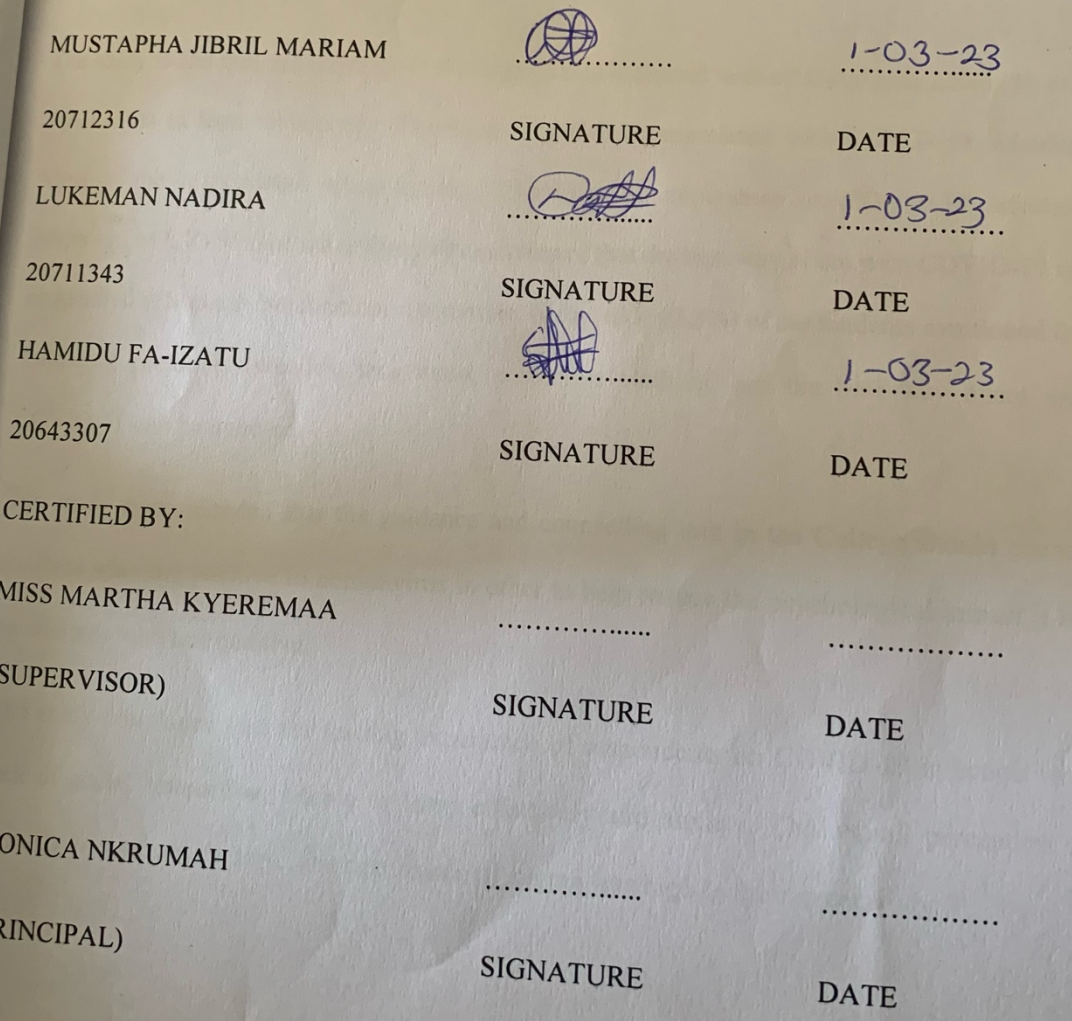 MUSTAPHA JIBRIL MARIAM ..................... 1-03-23
20712316 SIGNATURE DATE
LUKEMAN NADIRA ................... 1-03-23
20711343 SIGNATURE DATE
HAMIDU FA-IZATU ................... 1-03-23
20643307 SIGNATURE DATE
CERTIFIED BY:
MISS MARTHA KYEREMAA ................... ..................
SUPERVISOR) SIGNATURE DATE
ONICA NKRUMAH ................... ..................
RINCIPAL) SIGNATURE DATE